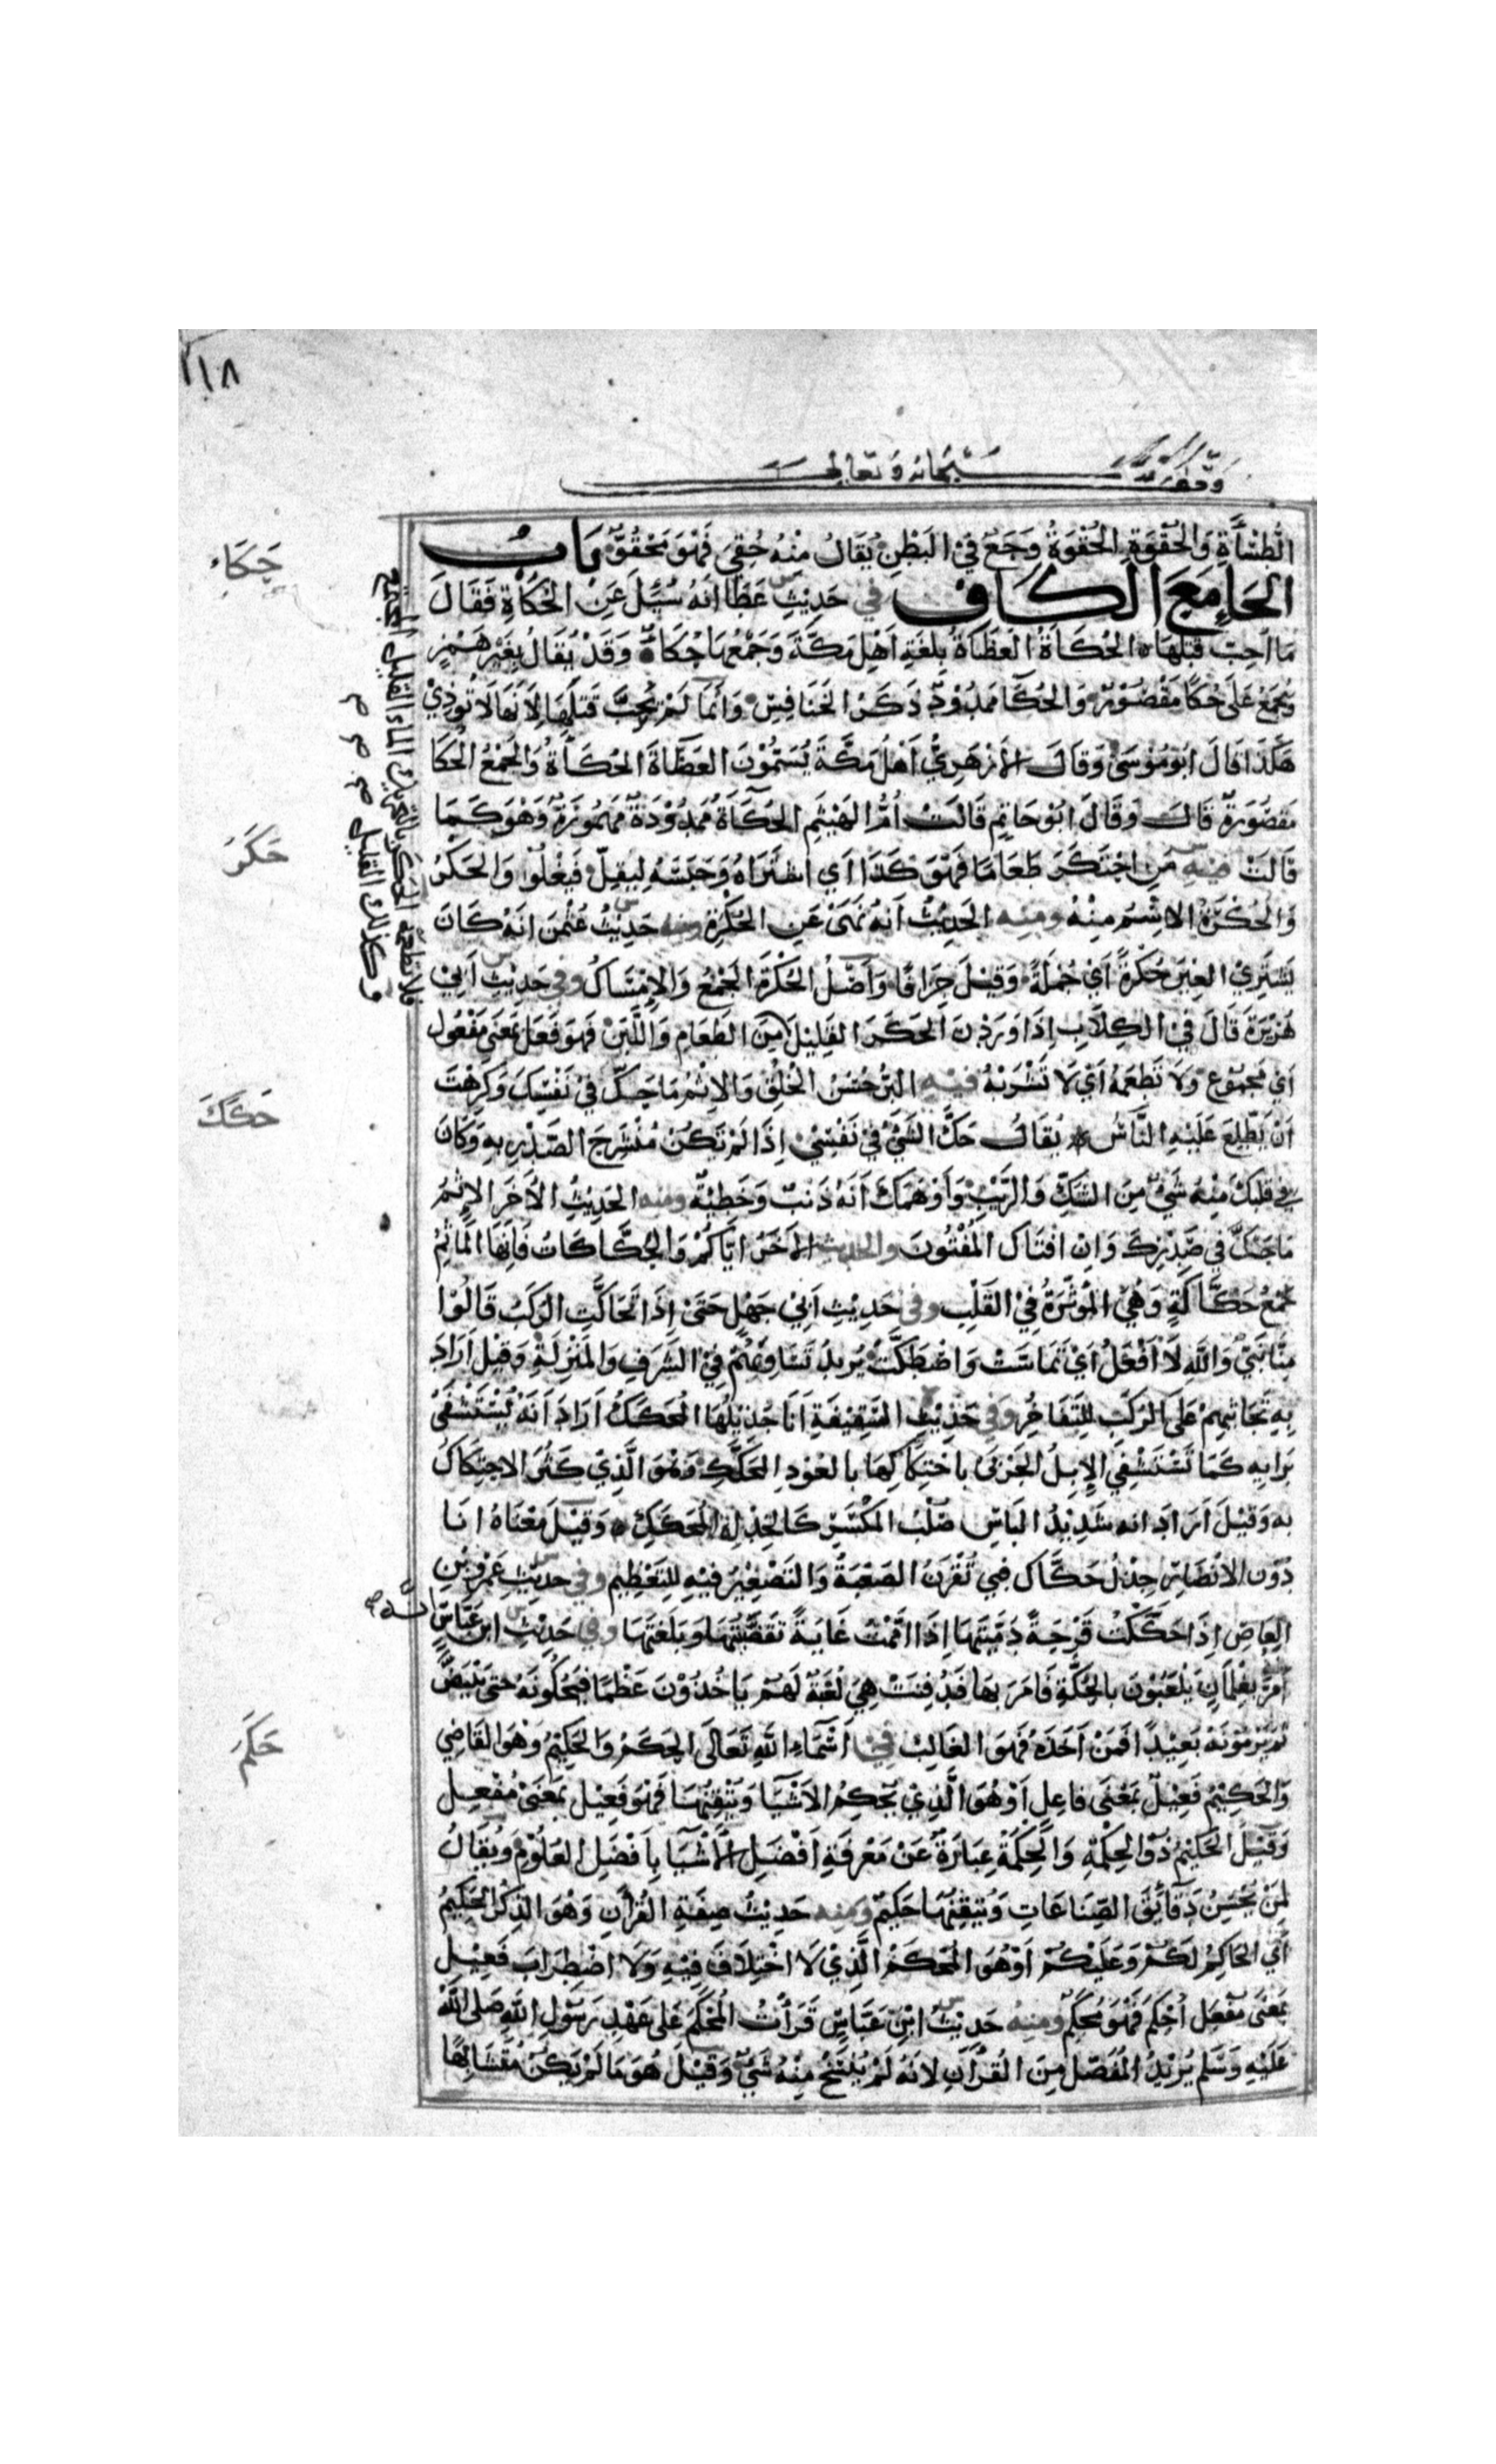 ٢١٨
سبحانه وتعالى
الطَّسْأَةِ وَالحُقْوَةِ الحُقْوَةُ وَجَعٌ فِي البَطْنِ يُقَالُ مِنْهُ حُقِيَ فَهُوَ مَحْقُوٌّ بَابُ
الحَاءِ مَعَ الكَافِ في حَدِيثِ عَطَا انَهُ سُئِلَ عَنِ الحُكَاةِ فَقَالَ
مَا أحِبّ قَتْلَهَا الحُكَاَةُ العَظَاةُ بِلُغَةِ اَهْلِ مَكَّةَ وَجَمْعُهَا حُكَاءٌ وَقَدْ يُقَالُ بِغَيْرِ هَمْزٍ
وَيُجْمَعُ عَلَى حُكًا مَقْصُوْرٌ وَالحُكَآ مَمْدُوْدٌ ذَكَرُ الخَنَافِسِ وَانَمَا لَمْ يُحِبَّ قَتلَهَا لِاَنَهَا لَا تُوذِيْ
هَكَذَا قَالَ ابُوْمُوْسَى وَقَالَ الاَزْهَرِيُّ اَهْلُ مَكَّةَ يُسَمُّوْنَ العَظَاةَ الحُكَاَةُ وَالجَمْعُ الحُكَا
مَقصُوَرةٌ قَالَ وَقَالَ ابُوْحَاتِمٍ قَالَتْ اُمُّ الهَيْثَمِ الحُكَآَةُ مَمْدُوْدَةٌ مَهمُوزَةٌ وَهْوَ كَمَا
قَالَتْ فيه مَنِ احْتَكَرَ طَعَامًا فَهْوَ كَذَا اَي اشْتَرَاهُ وَحَبَسَهُ لِيَقِلَّ فَيَغْلُوْا وَالحَكْرُ
وَالحُكْرَةُ الاِسْمُ مِنْهُ ومنه الحَدِيْثُ اَنَهُ نَهَىَ عَنِ الحُكْرَةِ ومنه حَدِيْثُ عُثْمنَ انَهُ كَانَ
يَشْتَرِيْ العِيْرَ حُكْرَةً اَيْ جُمْلَةً وَقِيْلَ جِزَافًا وَاَصْلُ الحُكْرَةِ الجَمْعُ وَالاِمْسَاكُ وفي حَدِيْثِ اَبِيْ
هُرَيْرَةَ قَالَ فِيْ الكِلَابِ اِذَا وَرَدْنَ الحَكَرَ القَلِيْلَ مِنَ الطَعَامِ وَاللَّبَنِ فَهوَ فَعَل بمَعنَى مَفْعُولٍ
اَيْ مَجمُوْعٍ وَلَا تَطعَمْهُ اَيْ لَا تَشْرَبْهُ فيه البِرُّ حُسْنُ الخُلْقِ وَالاِثْمُ مَا حَكَّ فِيْ نَفْسِكَ وَكَرِهْتَ
اَنْ يَطَّلِعَ عَلَيْهِ النَّاسُ يُقَالُ حَكَّ الشَيْءُ فِيْ نَفْسِيْ اِذَا لَمْ تَكُنْ مُنْشَرِحَ الصَدْرِ بِهِ وَكَانَ
فِي قَلبِكَ مِنْهُ شَيْءٌ مِنَ الشَكِّ وَالرَّيْبِ وَاَوْهَمَكَ اَنَهُ ذَنبٌ وَخَطِيْئَةٌ ومنه الحَدِيْثُ الاَخَرُ الاِثمُ
مَا حَكَّ فِي صَدْرِكَ وَاِنِ افتَاكَ المُفْتُونَ والحديث الاَخَرُ ايَّاكُمْ وَالحَكَّاكَاتُ فَاِنَهَا المَآثِمُ
جَمْعُ حَكَّاكَةٍ وَهْيَ المُؤثِّرَةُ فِيْ القَلْبِ وفي حَدِيْثِ اَبِيْ جَهْلٍ حَتَىَ اِذَا تَحَاكَّتِ الرَكَبُ قَالُوْا
مِنَّا نَبِيٌّ وَاللهِ لَا اَفْعَلُ اَيْ تَمَاسَّتْ وَاصْطَكَّتْ يُرِيْدُ تَسَاوِيْهِمْ فِيْ الشَرَفِ وَالمَنْزِلَةِ وَقِيْلَ اَرَادَ
بِهِ تَجَاثِيْهِمْ عَلَى الرُكَبِ لِلتَفَاخُرِ وفي حَدِيْثِ السَقِيْفَةِ اَنَا جُذَيْلُهَا المُحَكَّكُ اَرَادَ اَنَهُ يُسْتَشْفَى
بَرَايِهِ كَمَا تَسْتَشْفِي الاِبِلُ الجَرْبَى بِاحْتِكَاكِهَا بِالعُوْدِ المُحَكَّكِ وَهْوَ الَّذِيْ كَثُرَ الاحْتِكَاكُ
بِه وَقِيْلَ اَرَادَ انَه شَدِيْدُ البَاسِ صُلْبُ المَكْسَرِ كَالجِذْلِ المُحَكَكِ وَقِيْلَ مَعْنَاهُ انَا
دُوْنَ الاَنْصَارِ جِذْلُ حَكَّاكٍ فَبِي تُقْرَنُ الصَعْبَةُ وَالتَصْغِيْرُ فِيْهِ لِلتَعْظِيْمِ وفي حَدِيْثِ عَمْرِوبْنِ
العَاصِ اِذَا حَكَكْتُ قَرْحَةً دَمَّيْتَهَا اِذَا اَمَّمْتُ غَايَةً تَقَصَّيْتُهَا وَبَلَغتُهَا وفي حَدِيْثِ ابن عَبَّاسٍ
اَمَرَّ بِغِلْمَانٍ يَلْعَبُوْنَ بالحِكَّةِ فَاَمَرَ بِهَا فَدُفِنَتْ هِيَ لُعْبَةٌ لَهُمْ يَاخُذُوْنَ عَظْمًا فَيَحُكُّونَهُ حَتىَ يَبْيَضَّ
ثمَ يَرْمُوْنَهُ بَعِيْدًا فَمَنْ اَخَذَهُ فَهوَ الغَالِبُ في اَسْمَآءِ اللهِ تَعَالَى الحَكَمُ وَالحَكِيْمُ وَهْوَ القَاضِي
وَالحَكِيْمُ فَعِيْلٌ بمَعْنَى فَاعِلٍ اَوْ هُوَ الَّذِيْ يُحْكِمُ الاَشْيَا وَيُتْقِنُهَا فَهْوَ فَعِيْل بمَعَنَى مُفْعِلٍ
وَقِيْلَ الحَكِيْمُ ذُوْ الحِكْمَةِ وَالحِكْمَةُ عِبَارَةٌ عَنْ مَعْرِفَةِ اَفْضَلِ الاَشْيَآ بِاَفْضَلِ العُلُوْمِ وَيُقَالُ
لمَنْ يُحْسِنُ دَقَآئِقَ الصِنَاعَاتِ وَيُتقِنُهَا حَكِيْمٌ ومنه حَدِيْثُ صِفَةِ القُرْاَنِ وَهْوَ الذِكْرُ الحَكِيْمُ
اَيْ الحَاكِمُ لَكُمْ وَعَلَيْكُمْ اَوْ هُوَ المُحْكَمُ الَّذِيْ لَا اخْتِلَافَ فِيْهِ وَلَا اضْطِرَابَ فَعِيْل
بمَعَنى مُفْعَلٍ اُحْكِمَ فَهْوَ مُحكَمٌ ومنه حَدِيْثُ ابْنِ عَبَّاسٍ قَرَاْتُ المُحْكَمَ عَلَى عَهْدِ رَسُوْلِ اللهِ صَلى اللهُ
عَلَيْهِ وَسَلم يُرِيْدُ المُفَصَّلَ مِنَ القُرْاَنِ لانَهُ لَمْ يُنْسَخْ مِنْهُ شَيْءٌ وَقِيْلَ هُوَ مَا لَمْ يَكُنْ مُتَشَابِهًا
حَكَاء
حَكَرَ
حَكَكَ
حَكَمَ
فلا تطعمه الحكر بالتحريك الماء القليل المجتمع
وكذلك القليل